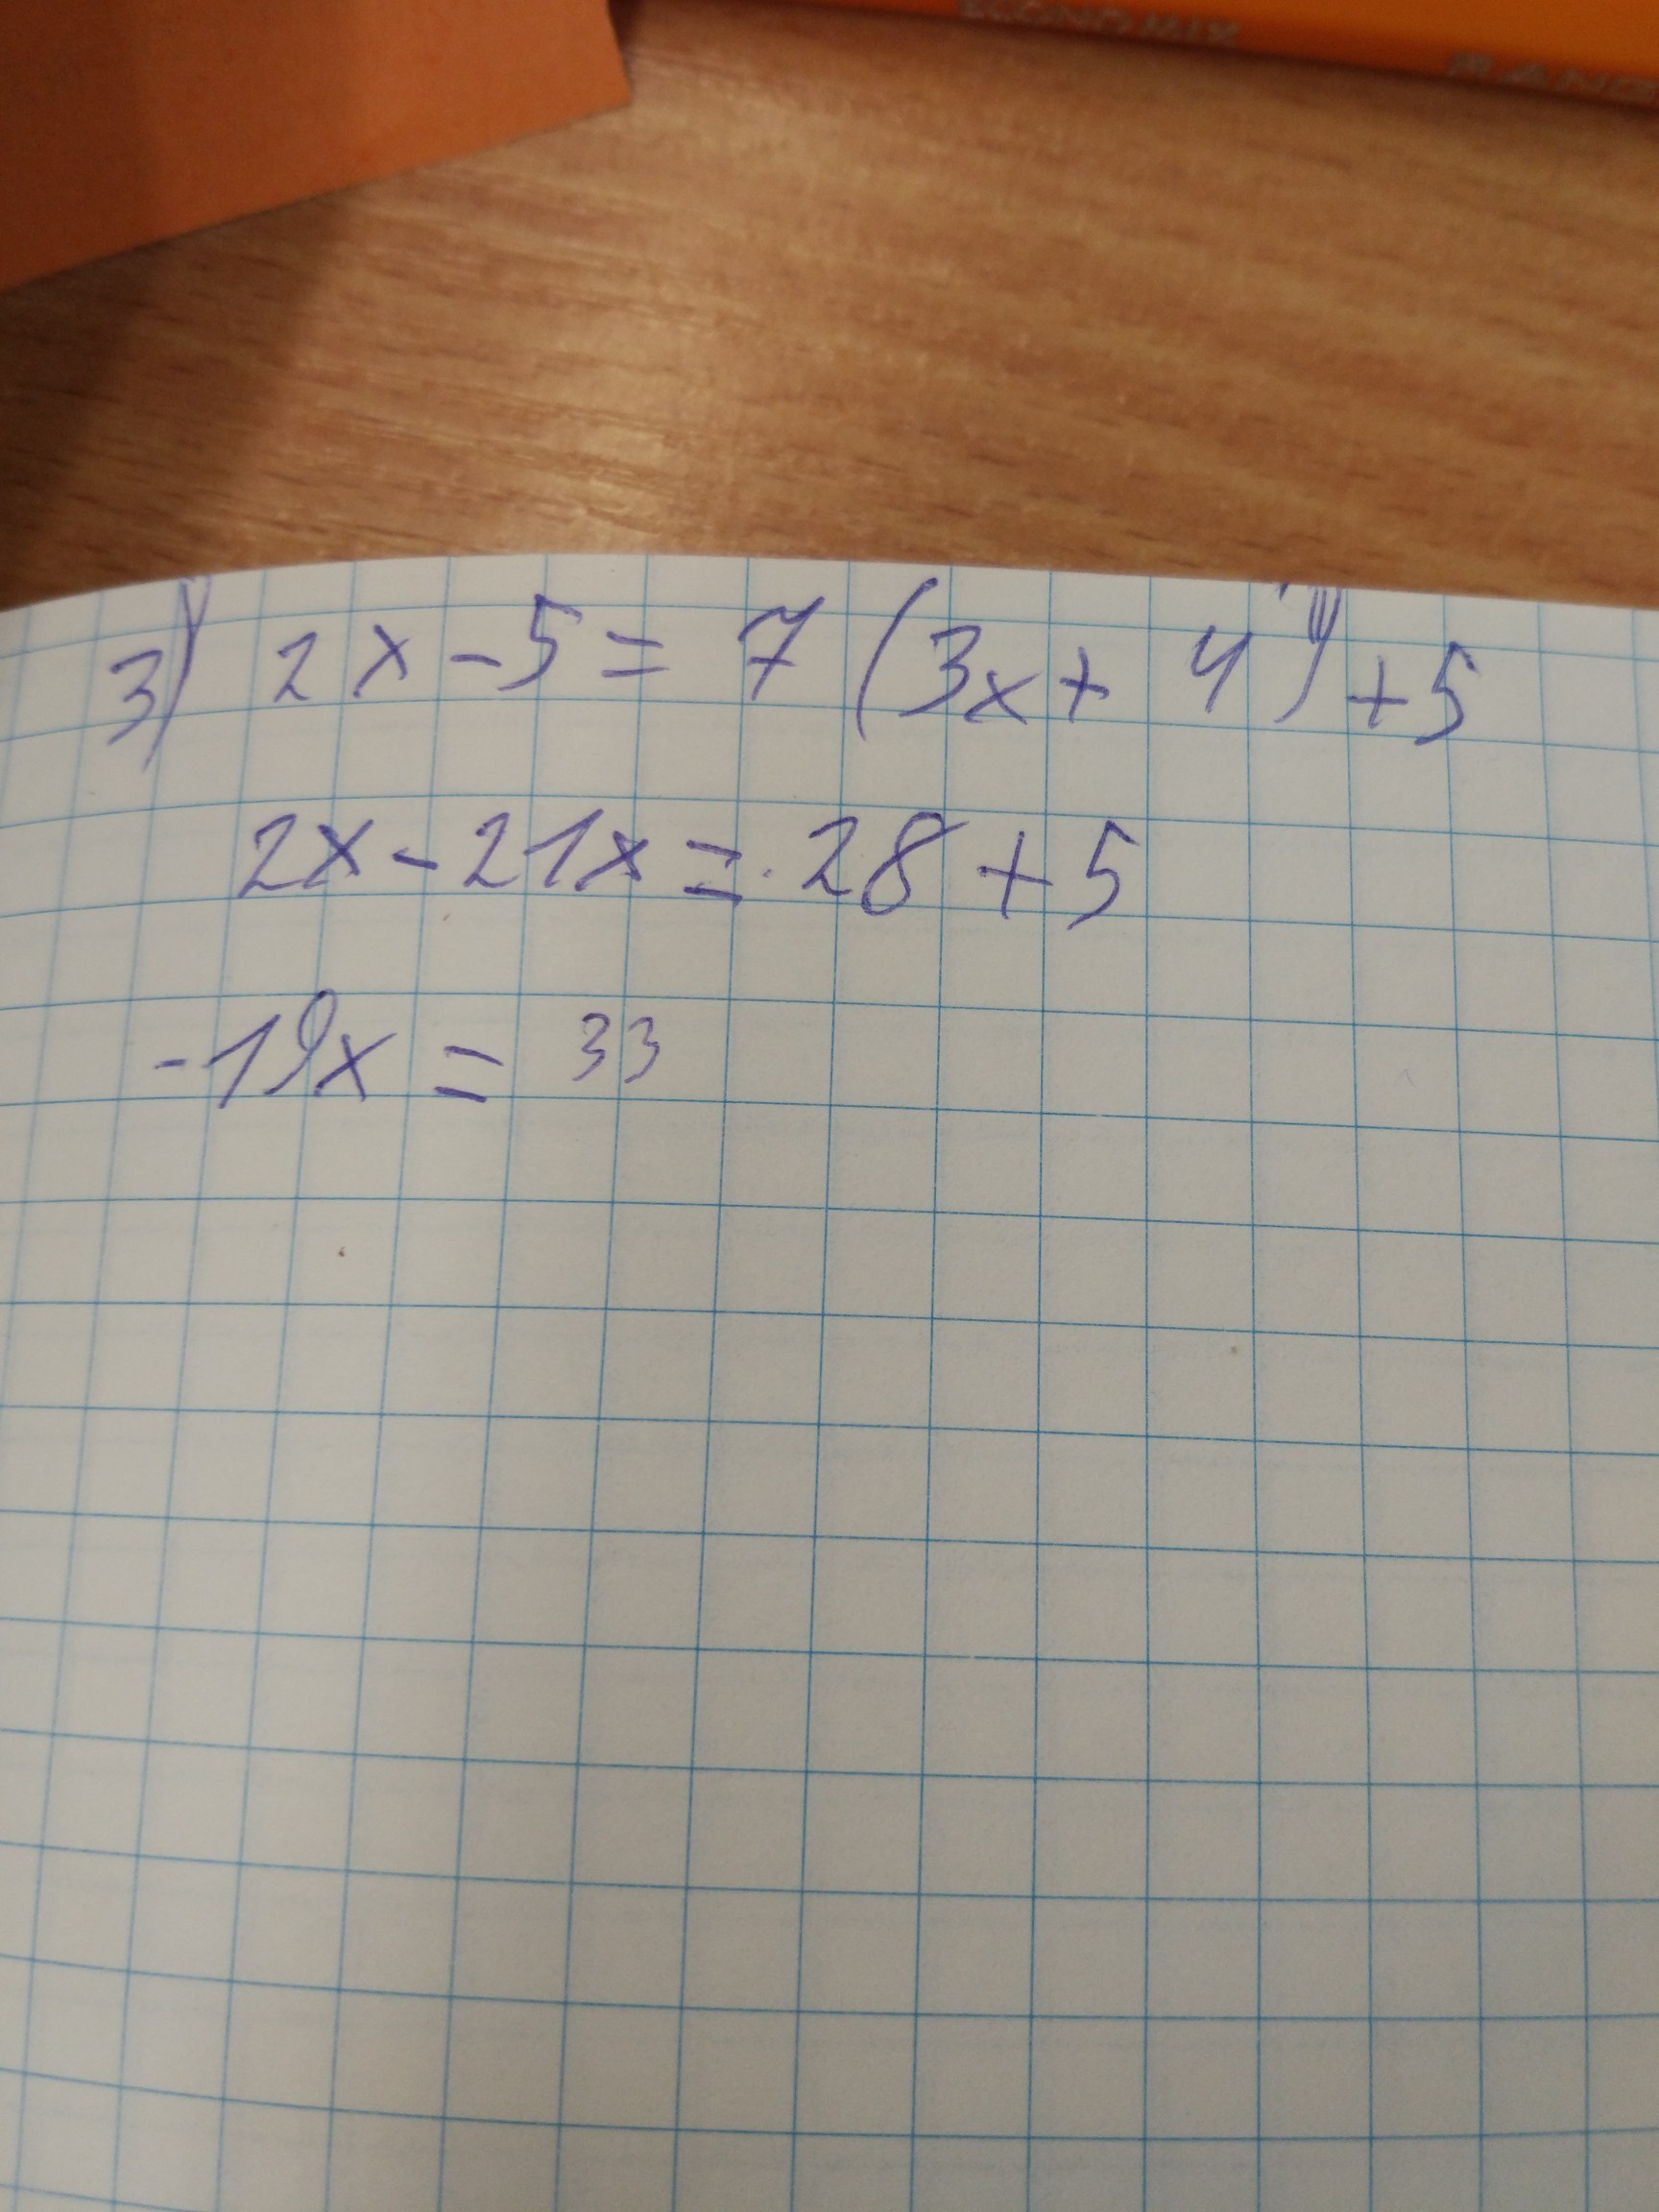 ECONOMIX
3) 2x-5= 7(3x+ 4)+5
2x-21x= 28+5
-19x = 33